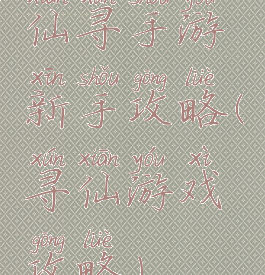 xiān xún shǒu yóu
仙寻手游
xīn shǒu gōng lüè
新手攻略(
xún xiān yóu xì
寻仙游戏
gōng lüè
攻略)